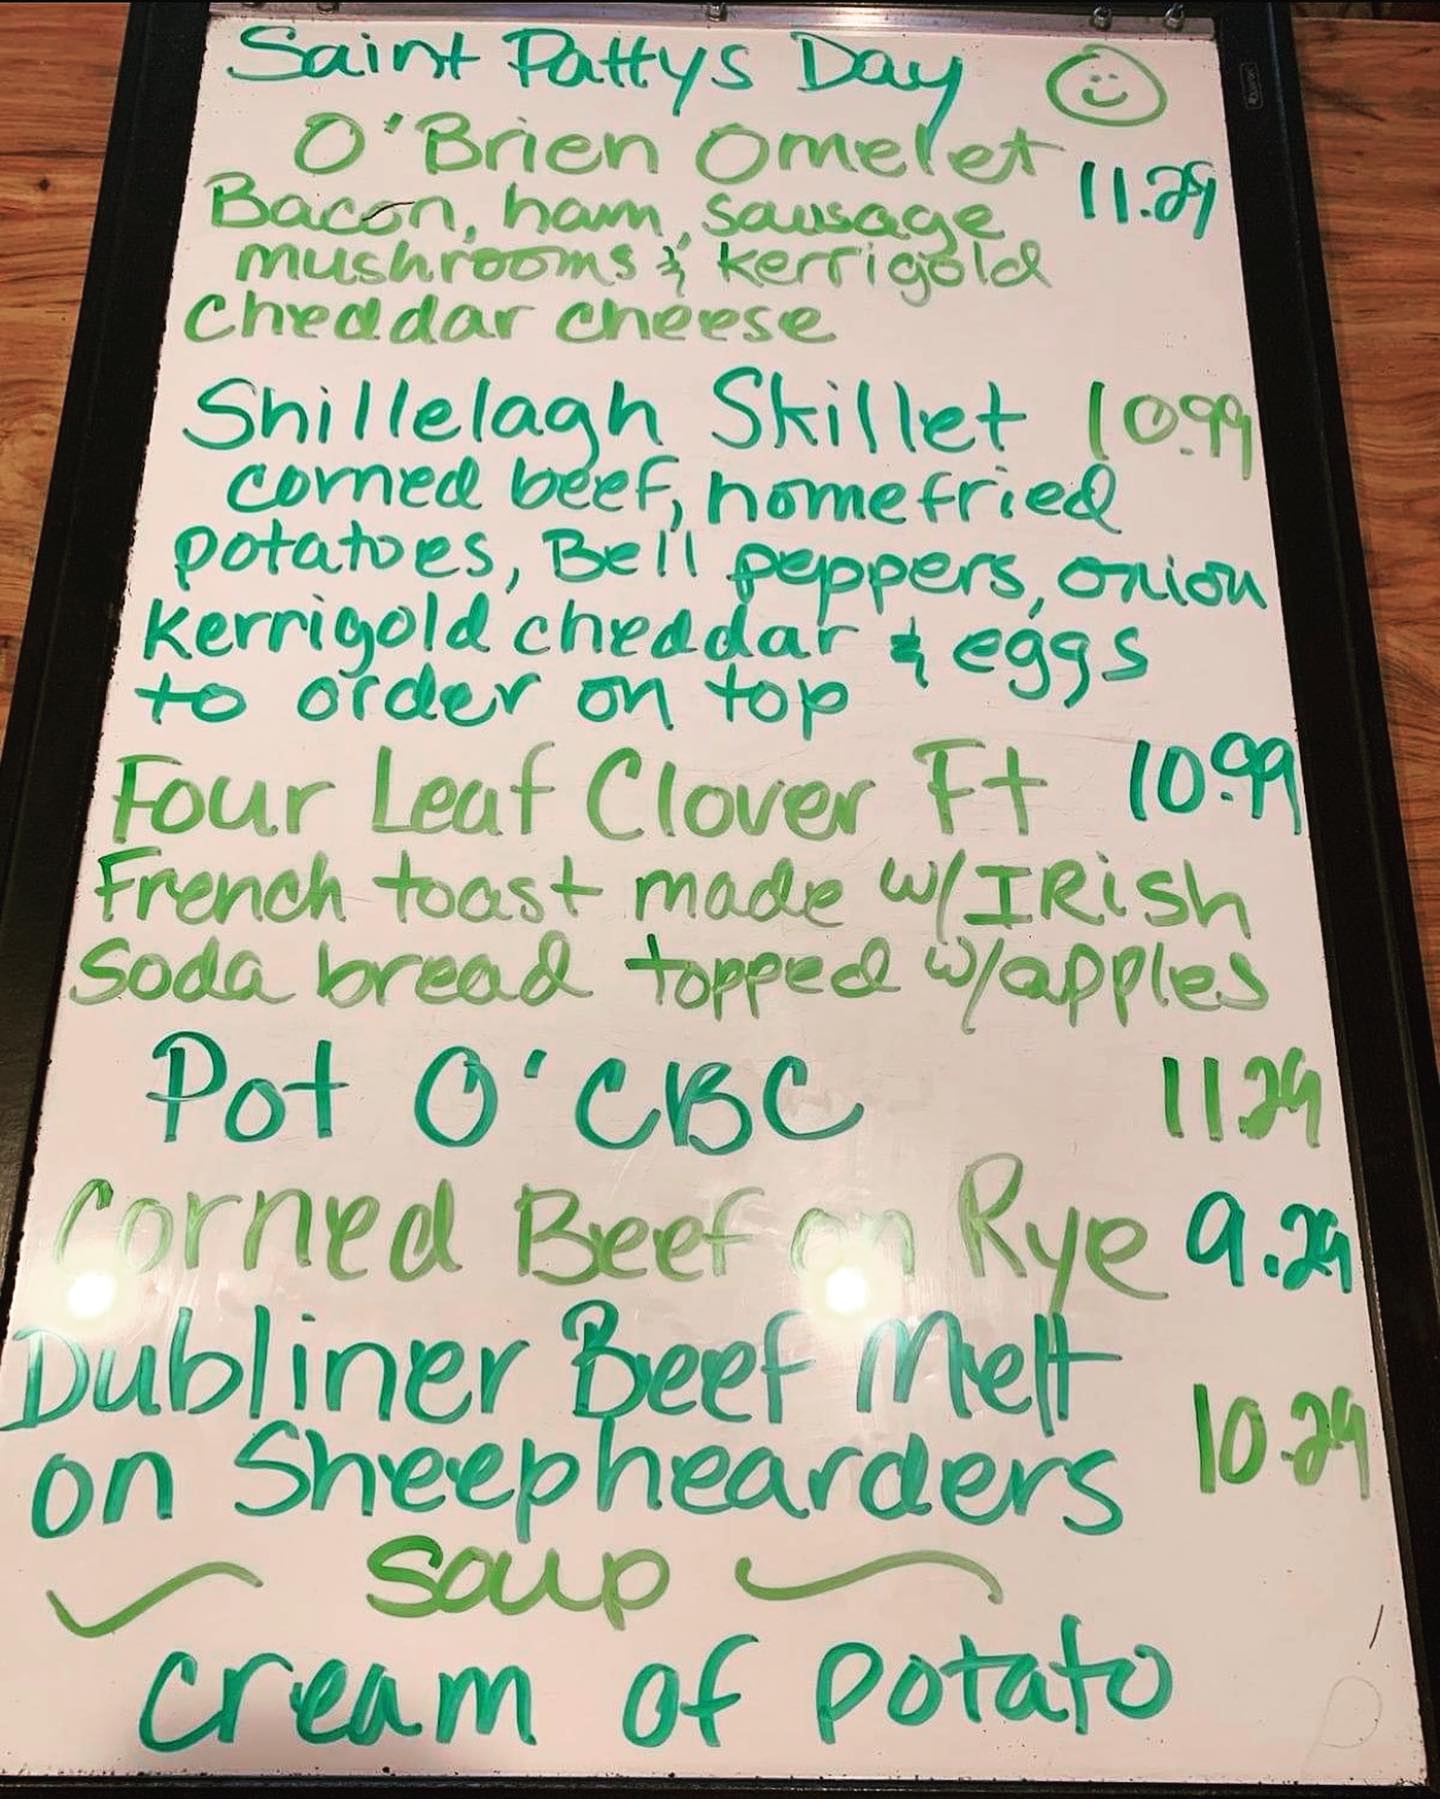 Saint Pattys Day
O'Brien Omelet 11.29
Bacon, ham, sausage
mushrooms & kerrigold
Cheddar cheese
Shillelagh Skillet 10.99
corned beef, homefried
potatoes, Bell peppers, onion
Kerrigold cheddar & eggs
to order on top
Four Leaf Clover Ft 10.99
French toast made w/IRish
Soda bread topped w/apples
Pot O'CBC 11.29
Corned Beef on Rye 9.29
Dubliner Beef Melt
on Sheephearders 10.29
Soup
cream of potato